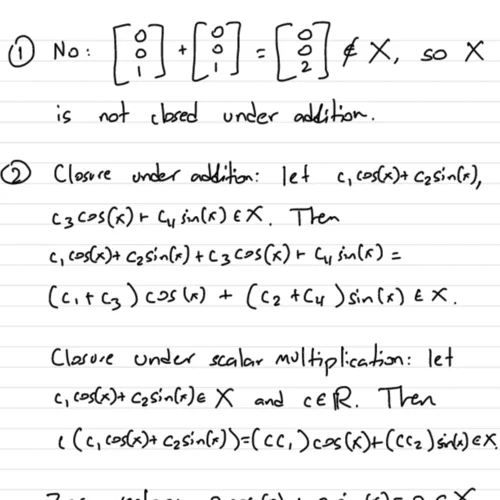 ① No: [0 0 1] + [0 0 1] = [0 0 2] ∉ X, so X
is not closed under addition.
② Closure under addition: let c₁cos(x)+c₂sin(x),
c₃cos(x)+c₄sin(x)∈X. Then
c₁cos(x)+c₂sin(x)+c₃cos(x)+c₄sin(x)=
(c₁+c₃)cos(x)+(c₂+c₄)sin(x)∈X.
Closure under scalar multiplication: let
c₁cos(x)+c₂sin(x)∈X and c∈ℝ. Then
c(c₁cos(x)+c₂sin(x))=(cc₁)cos(x)+(cc₂)sin(x)∈X.